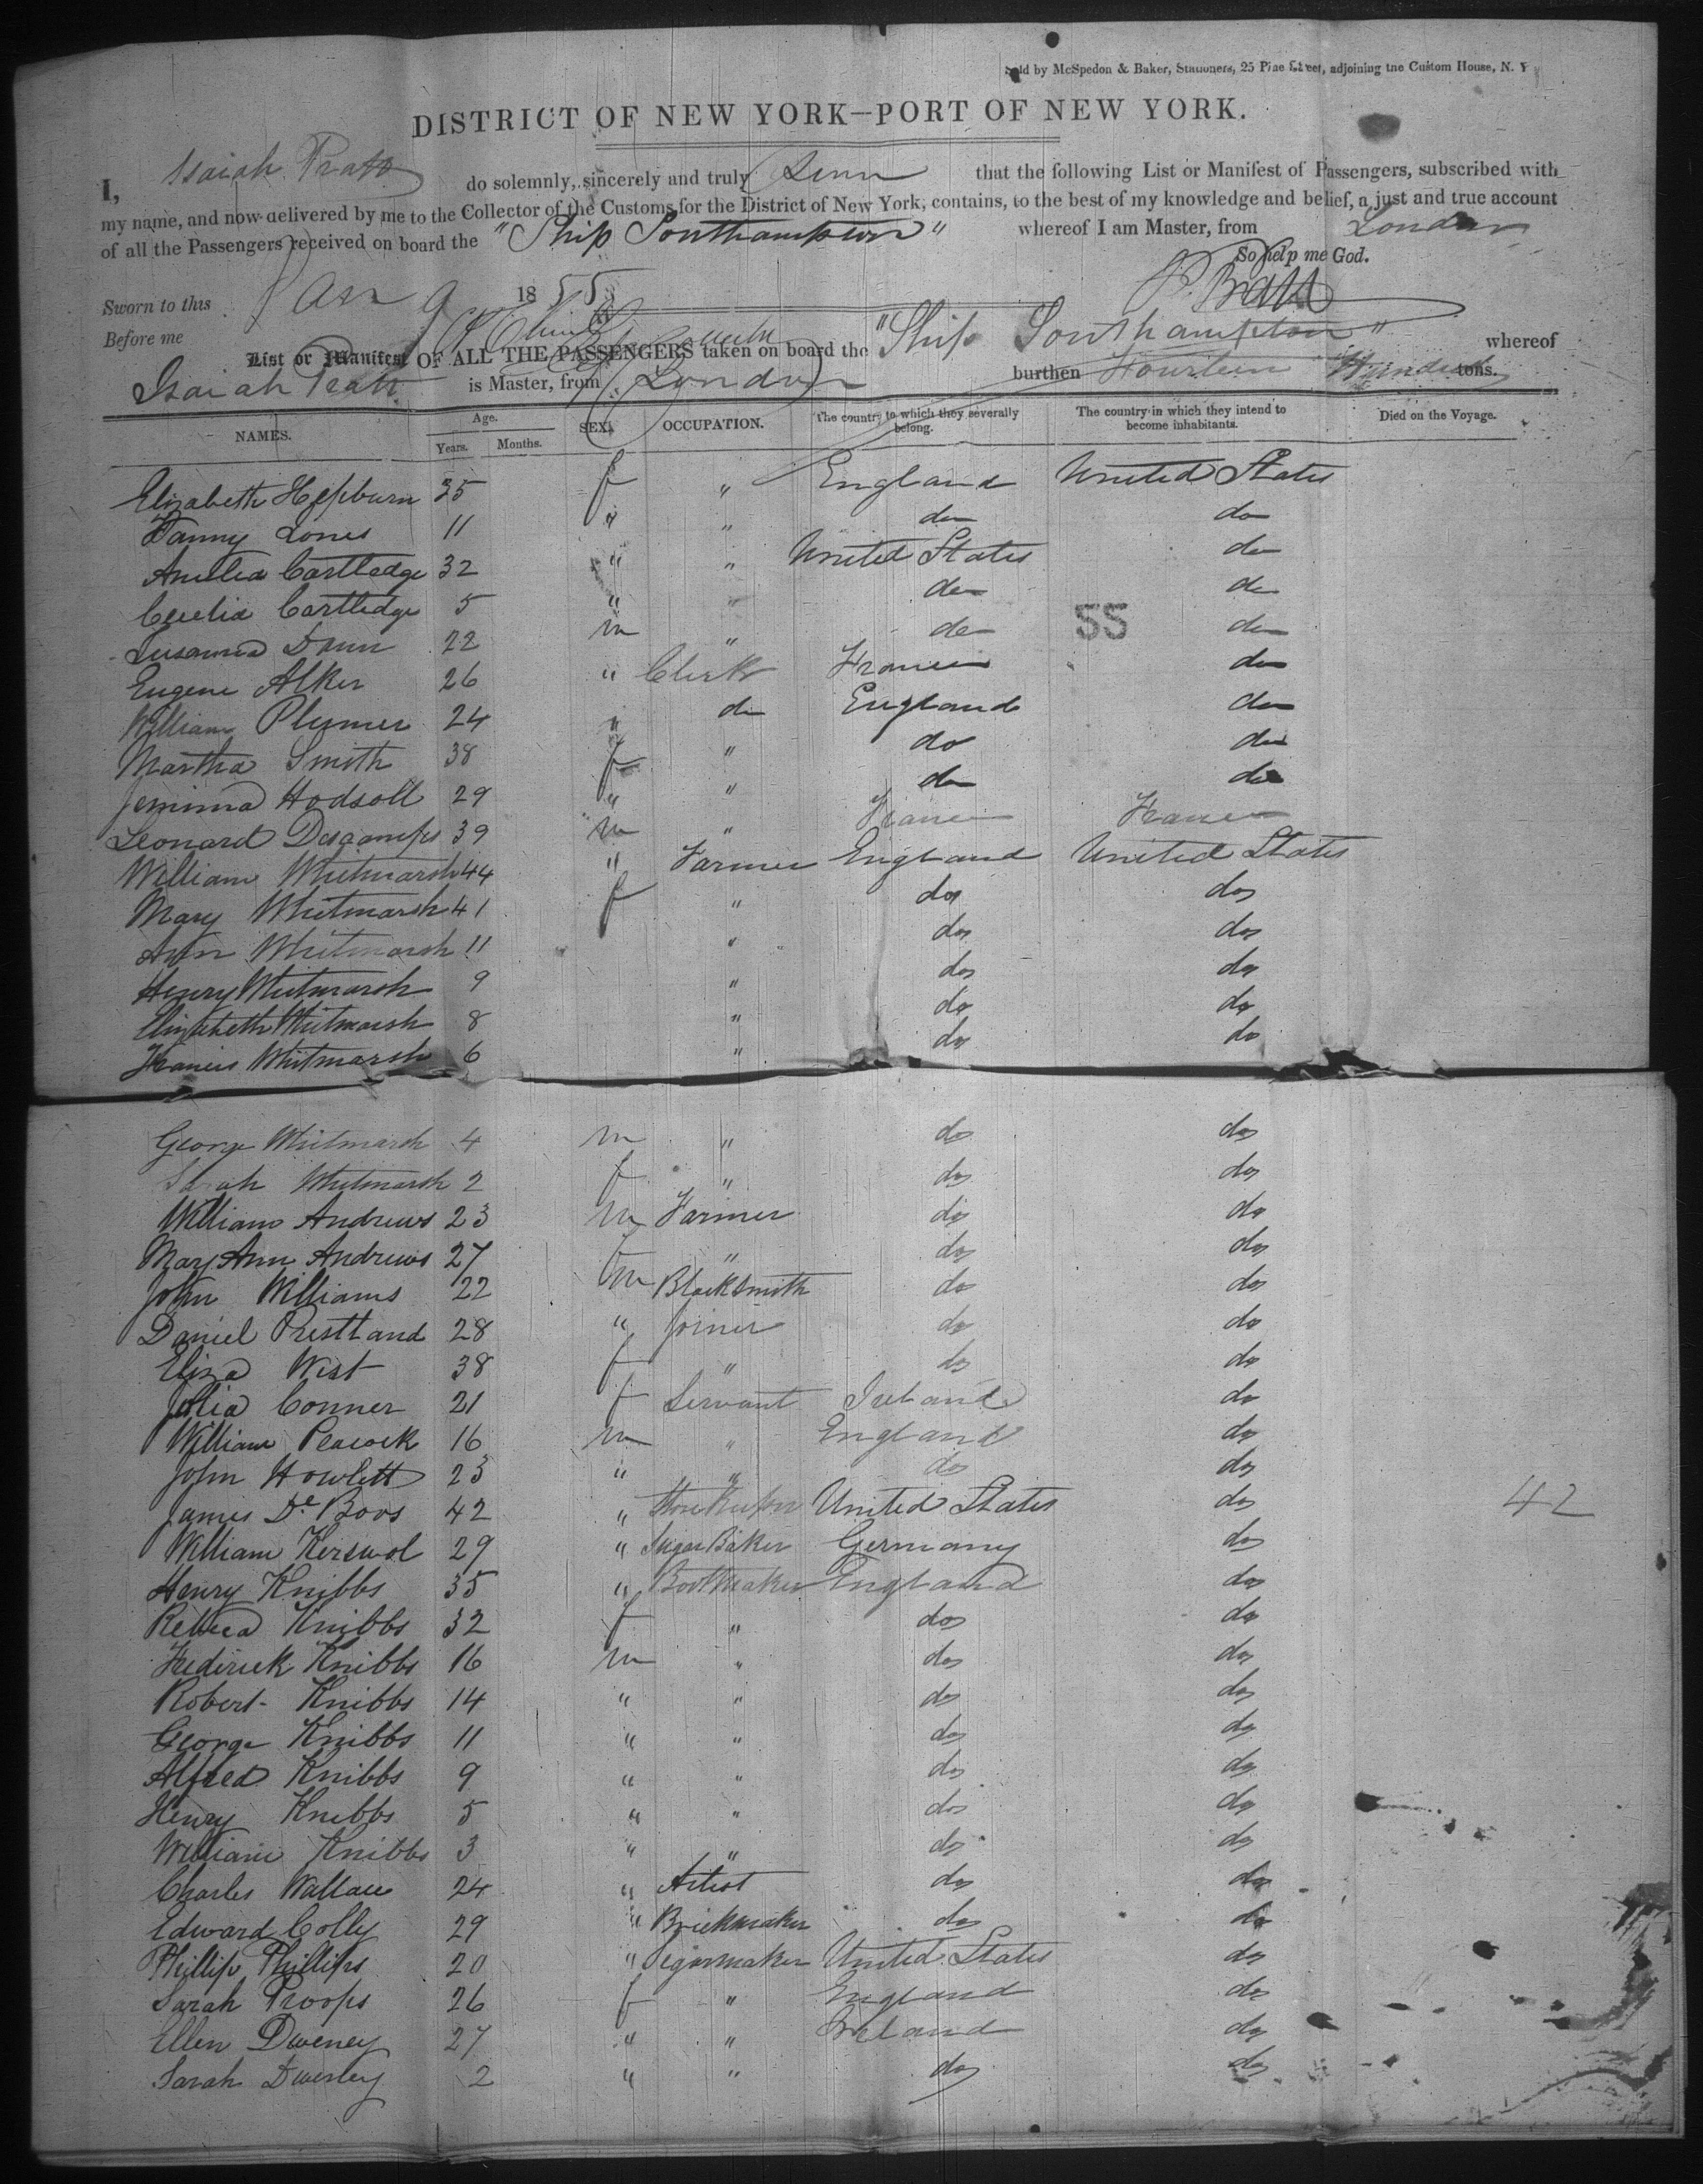 Sold by McSpedon & Baker, Stationers, 25 Pine Street, adjoining the Custom House, N. Y
DISTRICT OF NEW YORK—PORT OF NEW YORK.
I, Isaiah Pratt do solemnly, sincerely and truly that the following List or Manifest of Passengers, subscribed with
my name, and now delivered by me to the Collector of the Customs for the District of New York, contains, to the best of my knowledge and belief, a just and true account
of all the Passengers received on board the "Ship Southampton" whereof I am Master, from London
So help me God.
Sworn to this Jan 9 1855 Pratt
Before me
List or Manifest OF ALL THE PASSENGERS taken on board the "Ship Southampton" whereof
Isaiah Pratt is Master, from London burthen Fourteen Hundred tons.
NAMES. Age. Years. Months. SEX. OCCUPATION. The country to which they severally belong. The country in which they intend to become inhabitants. Died on the Voyage.
Elizabeth Hepburn 35 f " England United States
Fanny Lones 11 " " do do
Amelia Cartledge 32 " " United States do
Cecelia Cartledge 5 " " do do
Susanna Dann 22 m " do 55 do
Eugene Alker 26 " Clerk France do
William Plumer 24 " do England do
Martha Smith 38 f " do do
Jemima Hodsoll 29 " " do do
Leonard Descamps 39 m " France France
William Whitmarsh 44 " Farmer England United States
Mary Whitmarsh 41 f " do do
Ann Whitmarsh 11 " do do
Henry Whitmarsh 9 " do do
Elizabeth Whitmarsh 8 " do do
Francis Whitmarsh 6 " do do
George Whitmarsh 4 m " do do
Sarah Whitmarsh 2 f " do do
William Andrews 23 m Farmer do do
Mary Ann Andrews 27 f " do do
John Williams 22 m Blacksmith do do
Daniel Prestland 28 " Joiner do do
Eliza West 38 f " do do
Julia Conner 21 f Servant Ireland do
William Peacock 16 m " England do
John Howlett 23 " " do do
James De Boos 42 " Storekeeper United States do 42
William Kerswol 29 " Sugar Baker Germany do
Henry Knibbs 35 " Bootmaker England do
Rebeca Knibbs 32 f " do do
Frederick Knibbs 16 m " do do
Robert Knibbs 14 " " do do
George Knibbs 11 " " do do
Alfred Knibbs 9 " " do do
Henry Knibbs 5 " " do do
William Knibbs 3 " " do do
Charles Wallace 24 " Artist do do
Edward Colly 29 " Brickmaker do do
Phillip Phillips 20 " Segarmaker United States do
Sarah Troops 26 f " England do
Ellen Dweney 27 " " Ireland do
Sarah Dwenley 2 " " do do